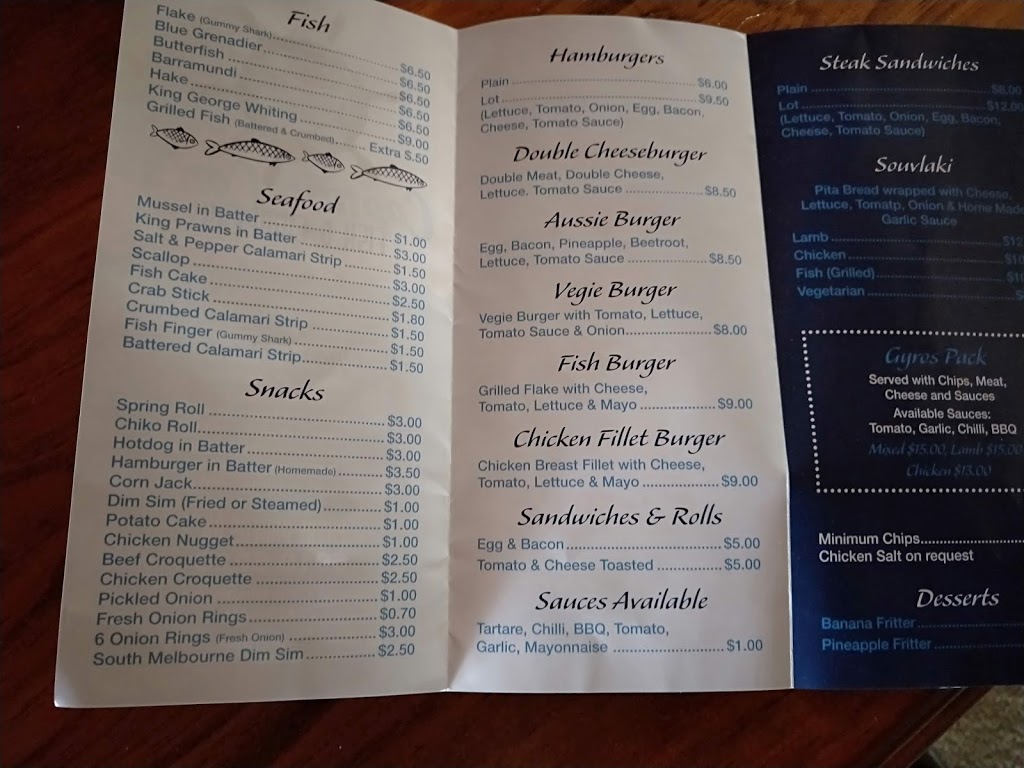 Fish
Flake (Gummy Shark)..... $6.50
Blue Grenadier..... $6.50
Butterfish ..... $6.50
Barramundi ..... $6.50
Hake ..... $6.50
King George Whiting ..... $9.00
Grilled Fish (Battered & Crumbed)..... Extra $.50
Seafood
Mussel in Batter ..... $1.00
King Prawns in Batter ..... $3.00
Salt & Pepper Calamari Strip ..... $1.50
Scallop ..... $3.00
Fish Cake ..... $2.50
Crab Stick ..... $1.80
Crumbed Calamari Strip ..... $1.50
Fish Finger (Gummy Shark) ..... $1.50
Battered Calamari Strip..... $1.50
Snacks
Spring Roll ..... $3.00
Chiko Roll..... $3.00
Hotdog in Batter ..... $3.00
Hamburger in Batter (Homemade)..... $3.50
Corn Jack..... $3.00
Dim Sim (Fried or Steamed)..... $1.00
Potato Cake..... $1.00
Chicken Nugget..... $1.00
Beef Croquette ..... $2.50
Chicken Croquette ..... $2.50
Pickled Onion ..... $1.00
Fresh Onion Rings..... $0.70
6 Onion Rings (Fresh Onion) ..... $3.00
South Melbourne Dim Sim..... $2.50
Hamburgers
Plain ..... $6.00
Lot ..... $9.50
(Lettuce, Tomato, Onion, Egg, Bacon,
Cheese, Tomato Sauce)
Double Cheeseburger
Double Meat, Double Cheese,
Lettuce. Tomato Sauce ..... $8.50
Aussie Burger
Egg, Bacon, Pineapple, Beetroot,
Lettuce, Tomato Sauce ..... $8.50
Vegie Burger
Vegie Burger with Tomato, Lettuce,
Tomato Sauce & Onion..... $8.00
Fish Burger
Grilled Flake with Cheese,
Tomato, Lettuce & Mayo ..... $9.00
Chicken Fillet Burger
Chicken Breast Fillet with Cheese,
Tomato, Lettuce & Mayo ..... $9.00
Sandwiches & Rolls
Egg & Bacon..... $5.00
Tomato & Cheese Toasted ..... $5.00
Sauces Available
Tartare, Chilli, BBQ, Tomato,
Garlic, Mayonnaise ..... $1.00
Steak Sandwiches
Plain ..... $8.00
Lot ..... $12.00
(Lettuce, Tomato, Onion, Egg, Bacon,
Cheese, Tomato Sauce)
Souvlaki
Pita Bread wrapped with Cheese,
Lettuce, Tomatp, Onion & Home Made
Garlic Sauce
Lamb ..... $12
Chicken.....
Fish (Grilled).....
Vegetarian .....
Gyros Pack
Served with Chips, Meat,
Cheese and Sauces
Available Sauces:
Tomato, Garlic, Chilli, BBQ
Mixed $15.00, Lamb $15.00
Chicken $13.00
Minimum Chips.....
Chicken Salt on request
Desserts
Banana Fritter.....
Pineapple Fritter.....